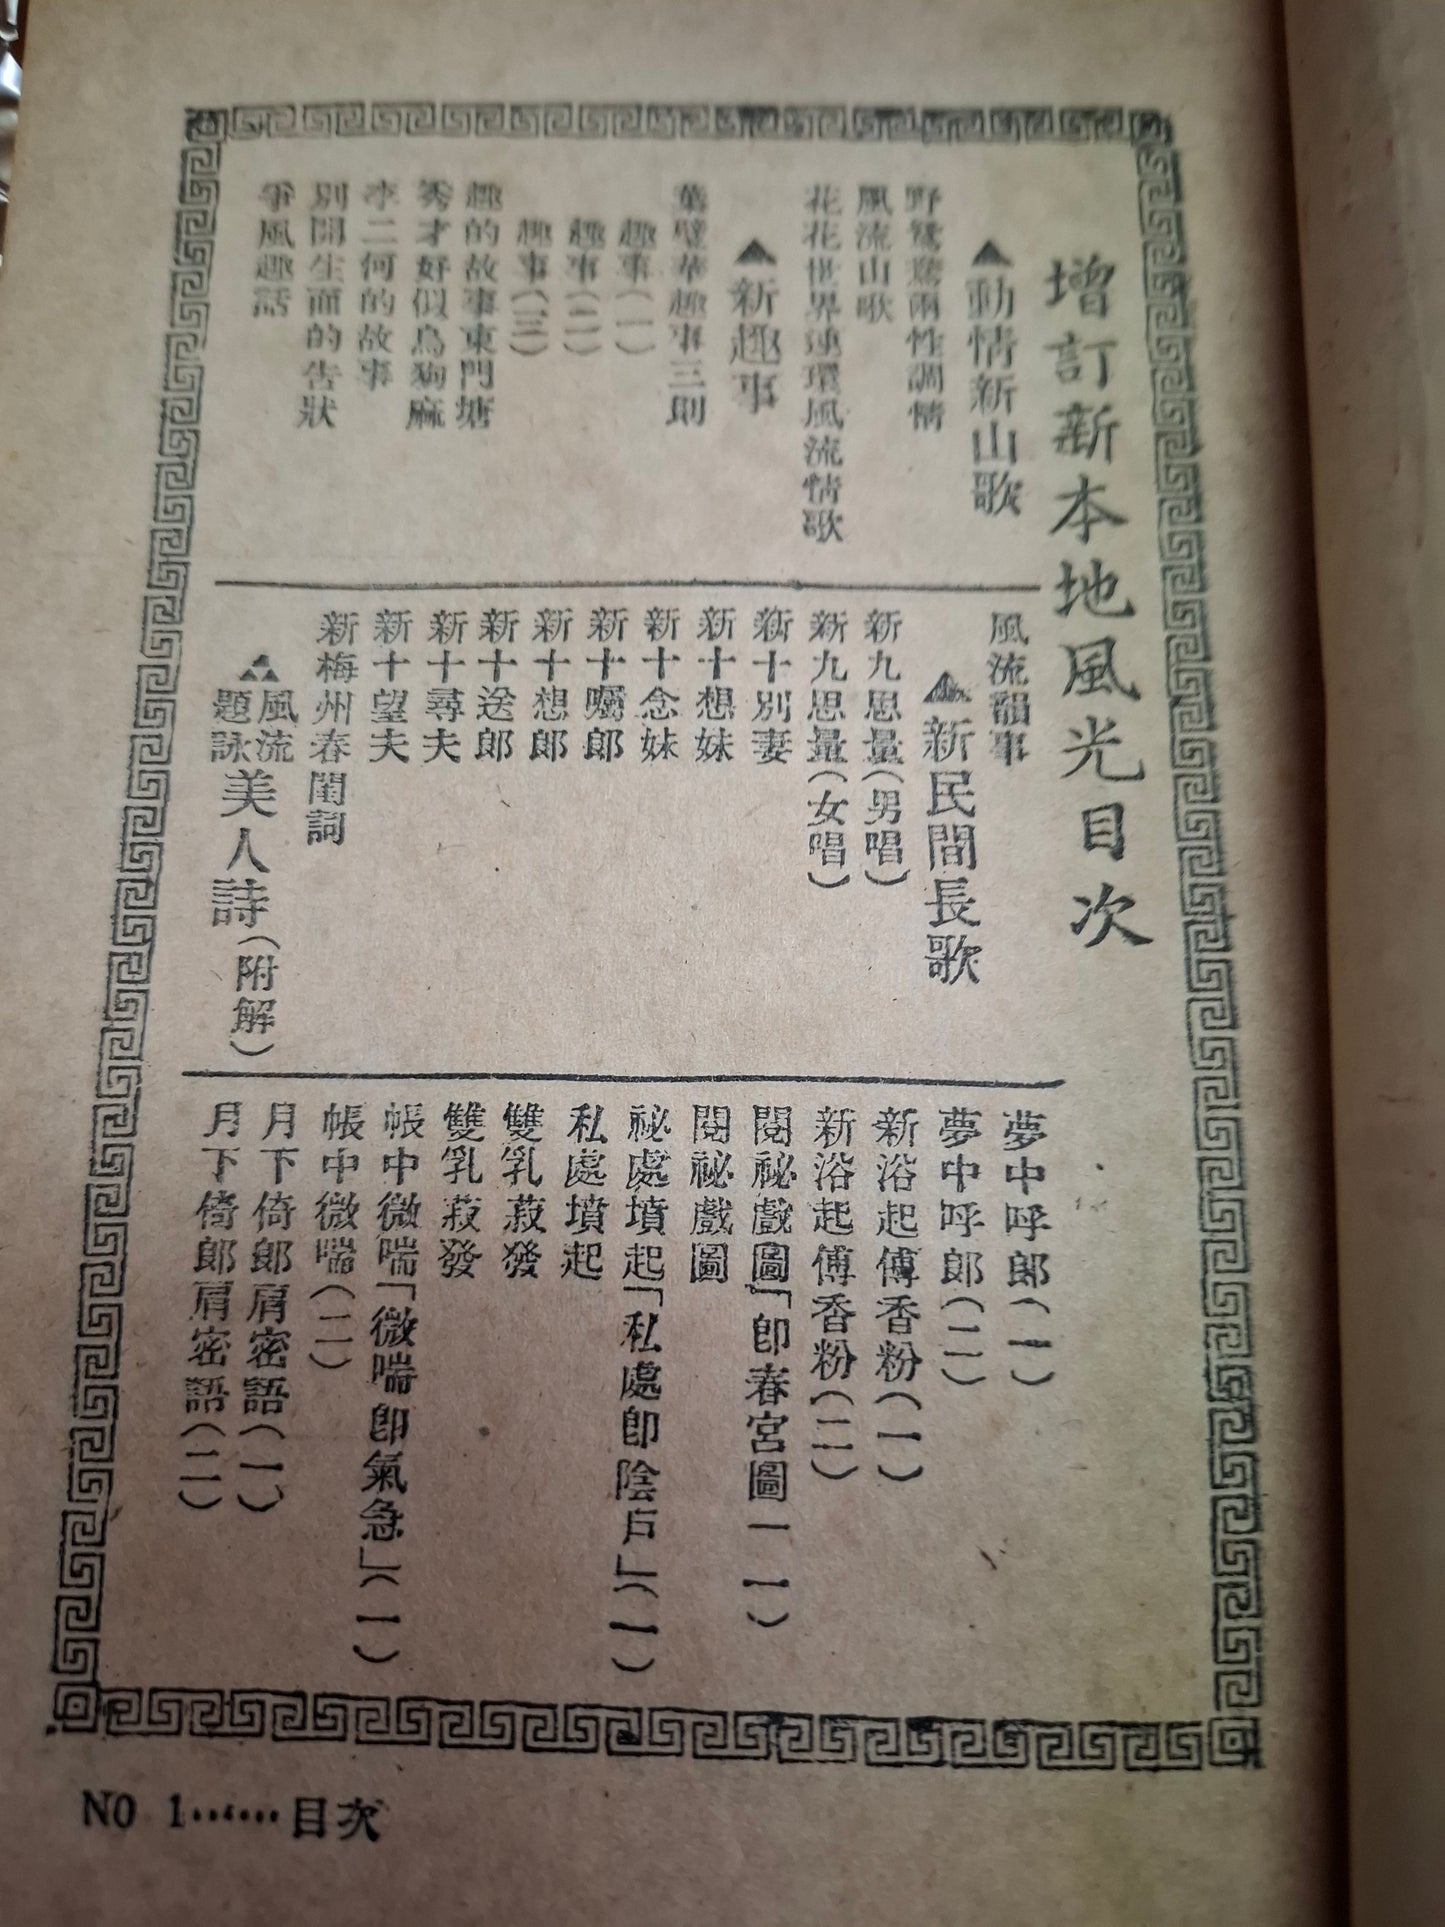 增訂新本地風光目次
▲動情新山歌
野鴛鴦兩性調情
風流山歌
花花世界連環風流情歌
▲新趣事
葉璧華趣事三則
趣事(一)
趣事(二)
趣事(三)
趣的故事東門塘
秀才好似烏狗麻
李二何的故事
別開生面的告狀
爭風趣話
風流韻事
▲新民間長歌
新九思量(男唱)
新九思量(女唱)
新十別妻
新十想妹
新十念妹
新十囑郎
新十想郎
新十送郎
新十尋夫
新十望夫
新梅州春閨詞
▲風流題詠美人詩(附解)
夢中呼郎(一)
夢中呼郎(二)
新浴起傅香粉(一)
新浴起傅香粉(二)
閱祕戲圖「卽春宮圖一一)
閱祕戲圖
祕處墳起「私處卽陰戶」(一)
私處墳起
雙乳菽發
雙乳菽發
帳中微喘「微喘卽氣急」(一)
帳中微喘(二)
月下倚郎肩密語(一)
月下倚郎肩密語(二)
NO 1……目次